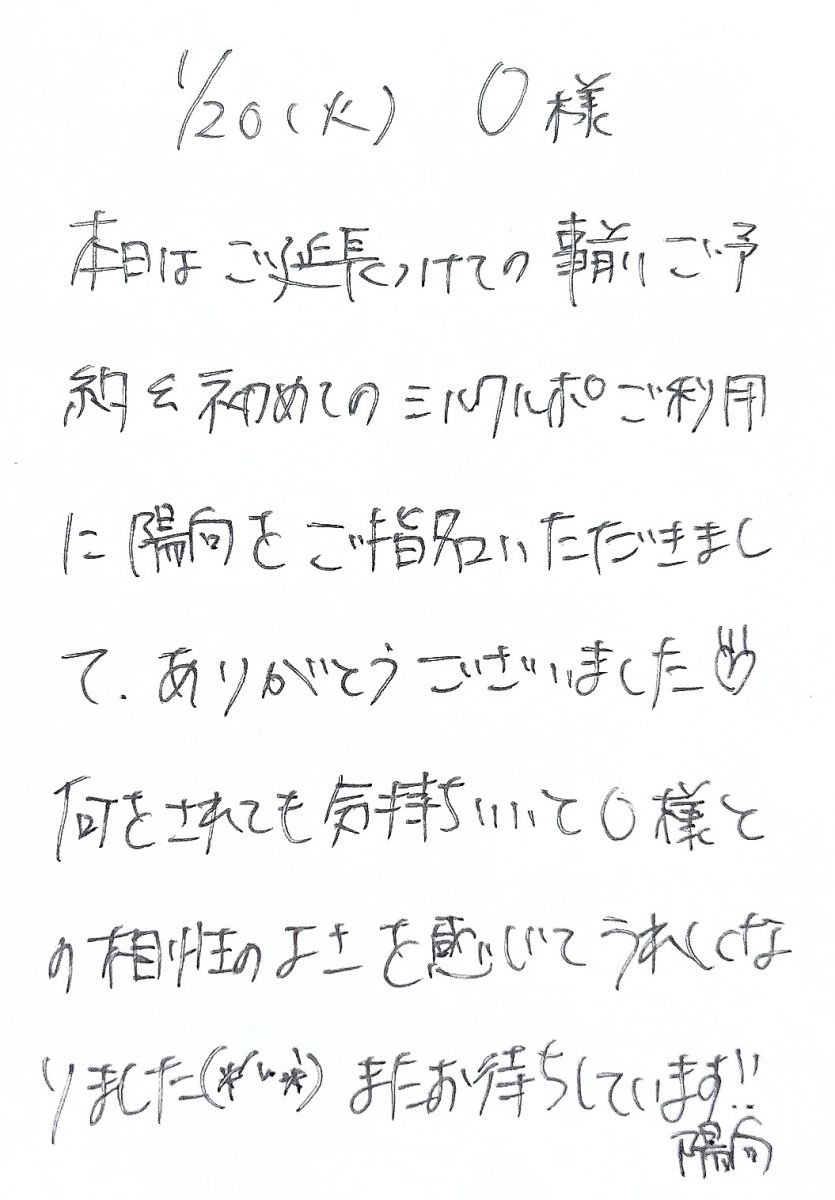 1/20(火) O様
本日はご延長つけての事前ご予
約と初めてのミルクルポご利用
に陽向をご指名いただきまし
て、ありがとうございました
何をされても気持ちいいてO様と
の相性のよさを感じてうれしくな
りました(*'''*) またお待ちしています!!
陽向